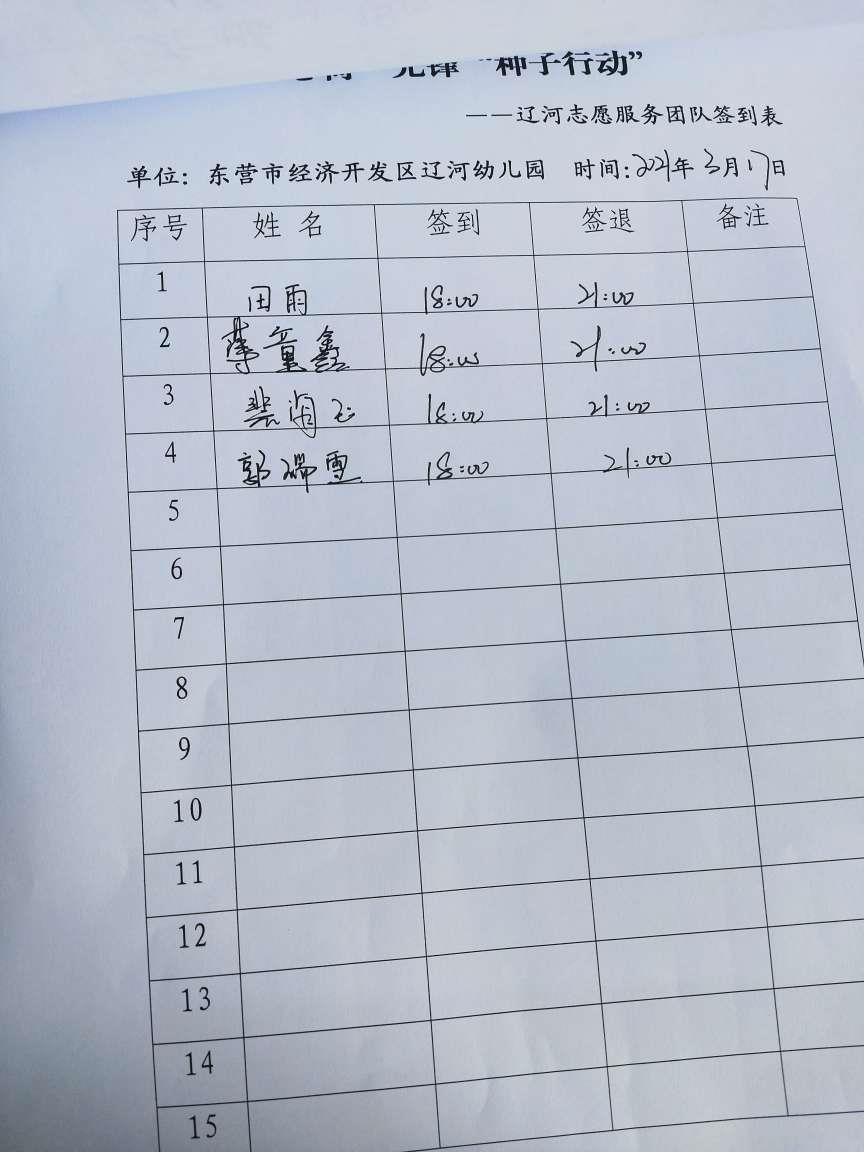 先锋“种子行动”
——辽河志愿服务团队签到表
单位：东营市经济开发区辽河幼儿园 时间：2021年3月17日
序号 姓名 签到 签退 备注
1 田雨 18:00 21:00
2 童鑫 18:00 21:00
3 裴 18:00 21:00
4 郭瑞雪 18:00 21:00
5
6
7
8
9
10
11
12
13
14
15